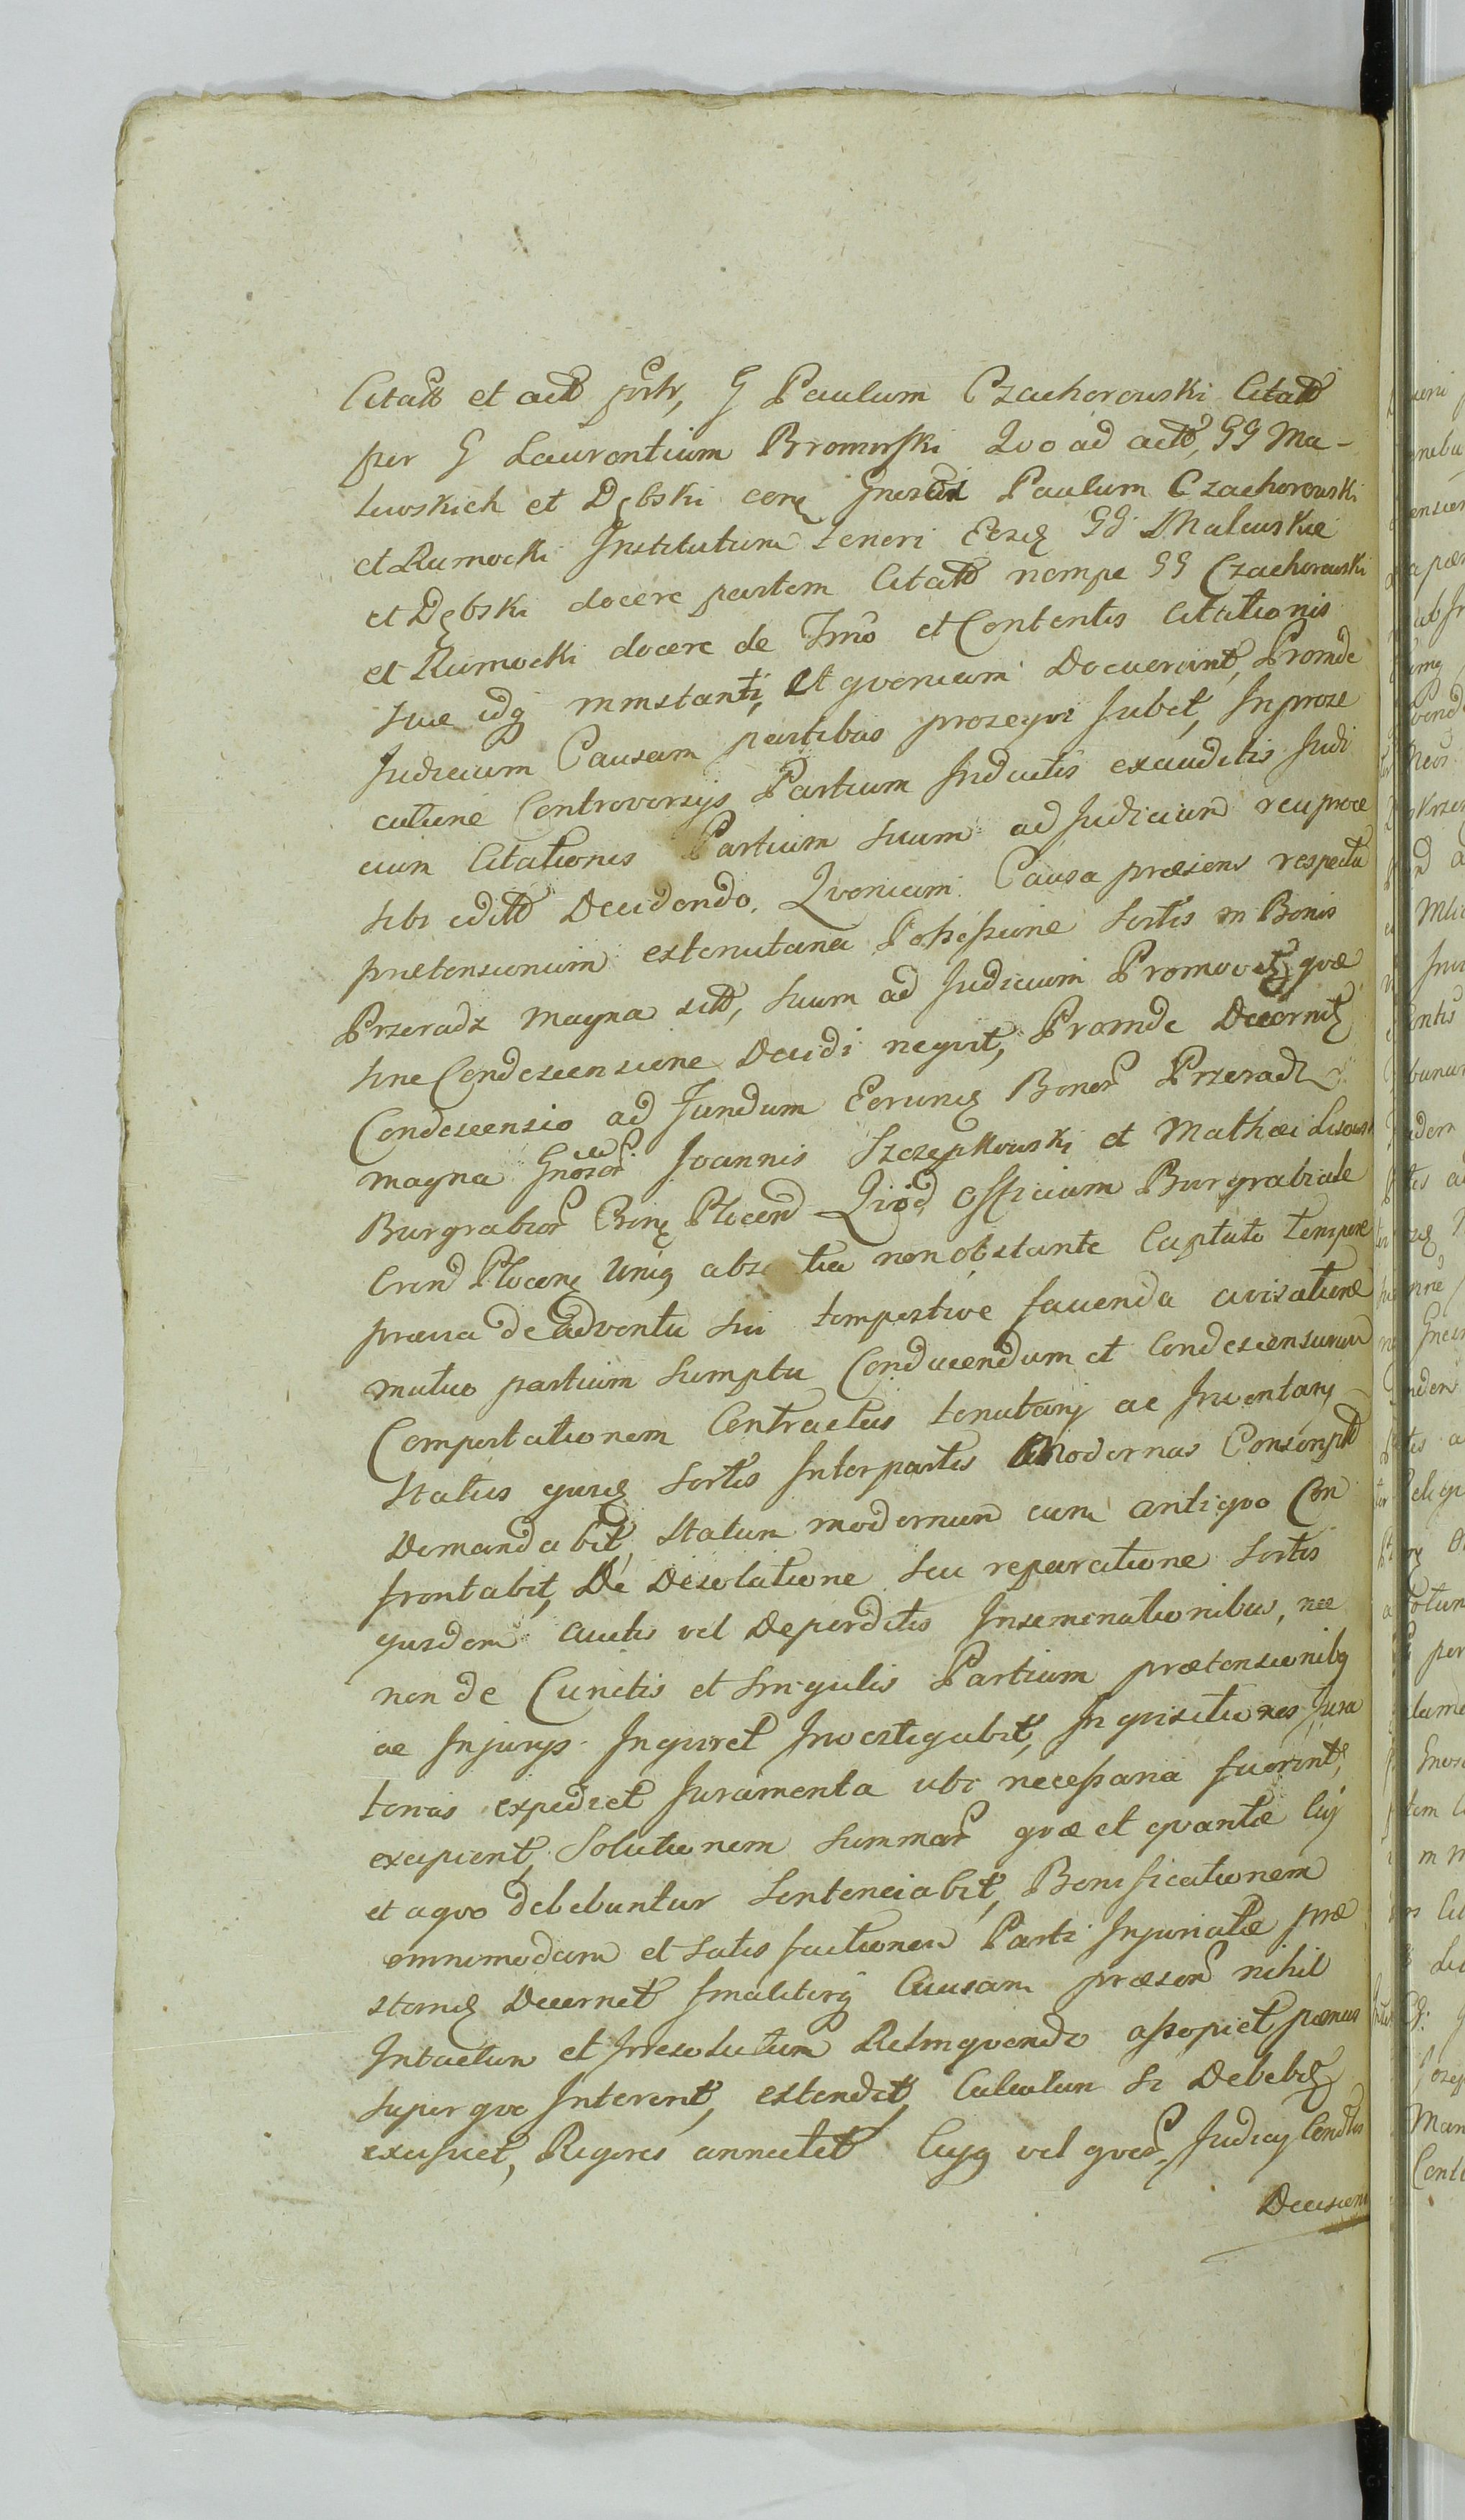 Citatt et act prtr, G Paulum Czachorowski Citatt
per G Laurentium Bromirski Quo ad act, GG Ma-
lewskich et Dębski cont Gnosos Paulum Czachorowski
et Rumocki Institutum teneri Eosd GG Malewskie
et Dębski docere partem Citatt nempe GG Czachorowski
et Rumocki docere de Tmo et Contentis Citationis
suae idq in instanti, Et qvoniam Docuerunt, Proinde
Judicium Causam partibus prozeqvi Jubet, In proze
cutione Controversijs Partium Inductis exauditis Judi
cium Citationis Partium suum ad Judicium reciproce
sibi editt Decidendo, Qvoniam Causa praesens respectu
pretensionum extenutaria Possessione Sortis in Bonis
Przeradz magna sitt, suum ad Judicium Promovetr qvae
sine Condescensione Decidi neqvit, Proinde Decernitr
Condescensio ad Fundum Eorund Bonor Przeradz
magna Gnosor Joannis Szczepkowski et Mathaei Lisowsk
Burgrabior Crini Plocen Qvod Officium Burgrabiale
Cren Plocen Uniq abstia non obstante Captato tempore
praevia de adventu sui tempestive facienda avisatione
mutuo partium sumptu Conducendum et Condescensurum
Comportationem Contractus tenutarij ac Inventarij
Status ejusd Sortis Inter partes Modernas Conscript
Demandabit, Statum modernum cum antiqvo Con
frontabit, De Desolatione seu reparatione Sortis
ejusdem Auctis vel Deperditis Inseminationibus, nec
non de Cunctis et singulis Partium praetensionibq
ac Injurijs Inqviret Investigabit, Inqvisitiones Jura
torias expediet Juramenta ubi necessaria fuerint,
excipient, Solutionem summar qvae et qvantae Cuj
et a qvo debebuntur Sentenciabit, Bonificationem
omnimodam et satis factionem Parti Injuriatae prae
stand Decernet finaliterq Causam praesen nihil
Intactum et Irresolutum Relinqvendo assopiet, paenas
super qvo Intererit, extendet, Calculum si Debebitr
exaudiet, Rigores annectet Cujq vel qvor, Judicij Condtis
Decisioni